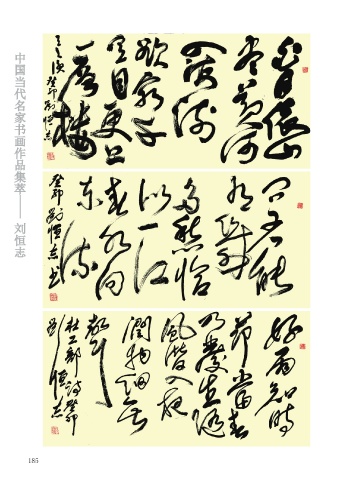 中国当代名家书画作品集萃——刘恒志
白日依山
尽黄河
入海流
欲穷千
里目更上
一层楼
王之涣 癸卯 刘恒志
问君能
有几
多愁恰
似一江
春水向
东流
癸卯 刘恒志书
好雨知时
节当春
乃发生随
风潜入夜
润物细无
声
杜工部诗癸卯
刘恒志
185